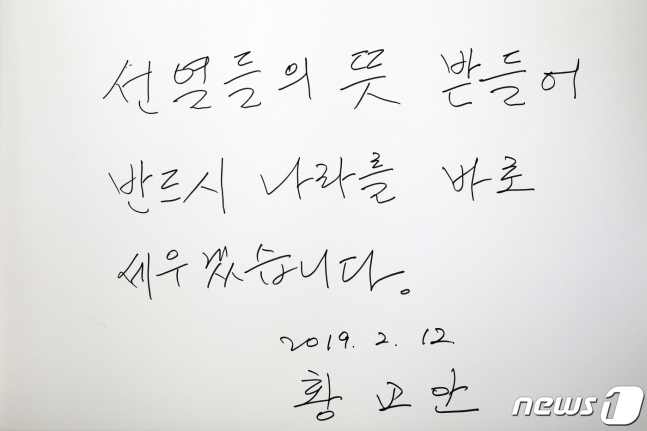 선열들의 뜻 받들어
반드시 나라를 바로
세우겠습니다.
2019. 2. 12
황교안
news1